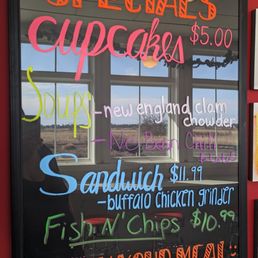 SPECIALS
Cupcakes $5.00
Soups - new england clam
chowder
- NC Bean Chili
Sandwich $11.99
- buffalo chicken grinder
Fish N' Chips $10.99
YOUR MEAL